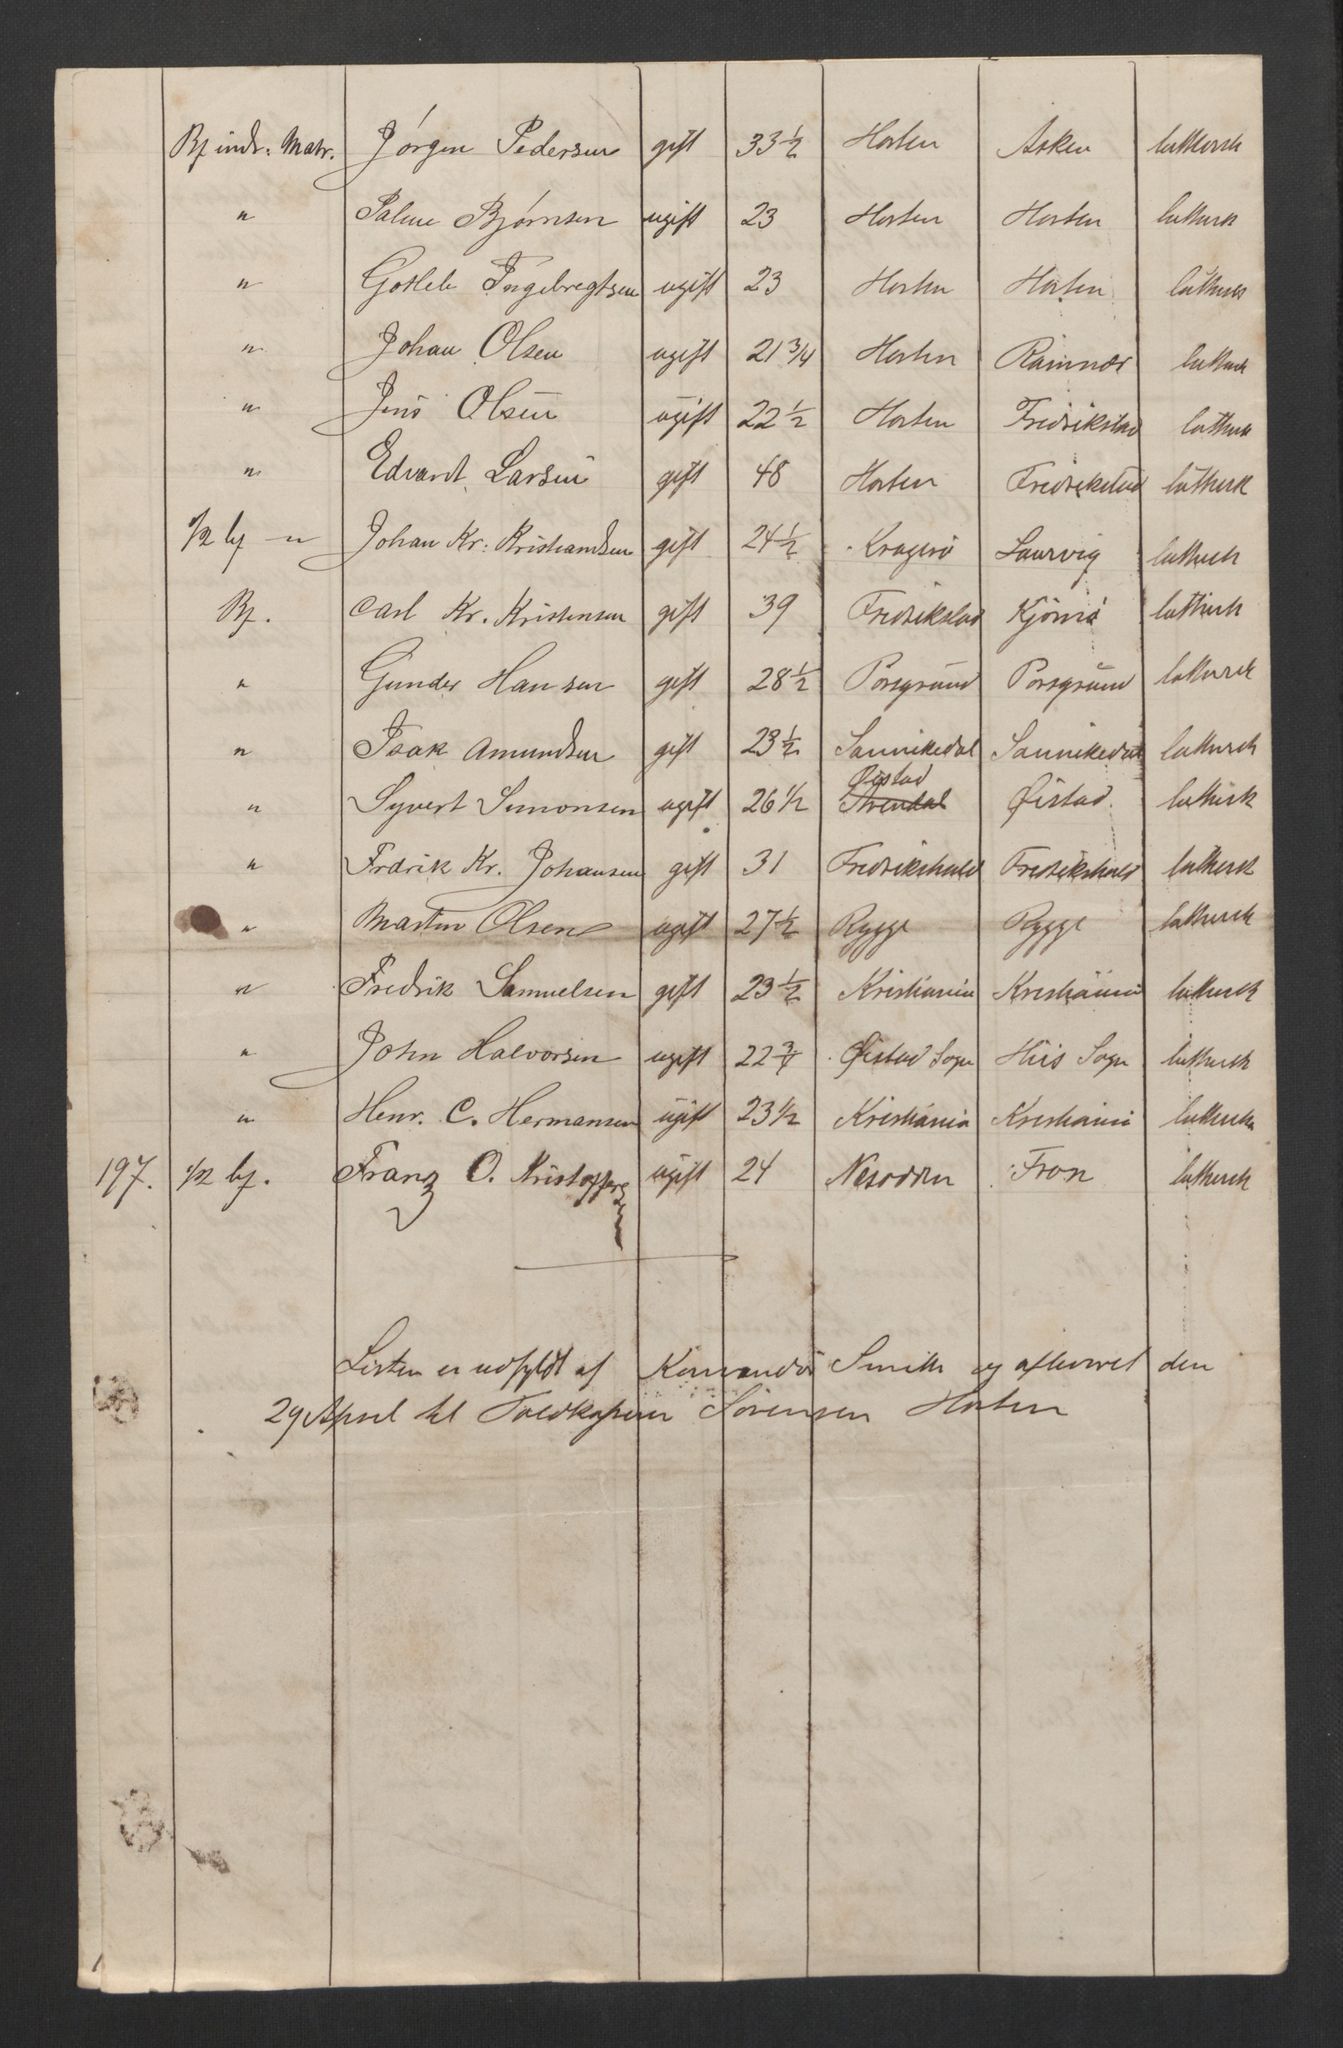 Bf indr. Matr. Jörgen Pedersen gift 33 1/2 Horten Asken luthersk
" Palme Bjørnsen ugift 23 Horten Horten luthersk
" Gotleb Ingebregtsen ugift 23 Horten Horten luthersk
" Johan Olsen ugift 21 3/4 Horten Ramnæs luthersk
" Jens Olsen ugift 22 1/2 Horten Fredrikstad luthersk
" Edvard Larsen gift 48 Horten Fredrikstad luthersk
1/2 bf " Johan Kr. Kristiandsen gift 24 1/2 Kragerö Laurvig luthersk
Bf. Carl Kr. Kristensen gift 39 Fredrikstad Kjömö luthersk
" Gunder Hansen gift 28 1/2 Porsgrund Porsgrund luthersk
" Isak Amundsen gift 23 1/2 Sannikedal Sannikedal luthersk
" Syvert Simonsen ugift 26 1/2 Øistad Arendal Øistad. luthersk
" Frdrik Kr. Johansen gift 31 Fredrikshald Fredrikshald luthersk
" Martin Olsen ugift 27 1/2 Rygge Rygge luthersk
" Fredrik Samuelsen gift 23 1/2 Kristiania Kristiania luthersk
" John Halvorsen ugift 22 3/4 Øistad Sogn Hiis Sogn luthersk
" Henr. C. Hermansen ugift 23 1/2 Kristiania Kristiania luthersk
197. 1/2 bf. Franz O. Kristoffersen ugift 24 Nesodden Fron luthersk
Listen er udfyldt af Komandör Smith og afleveret den
29 April til Toldkaserer Sörensen Horten